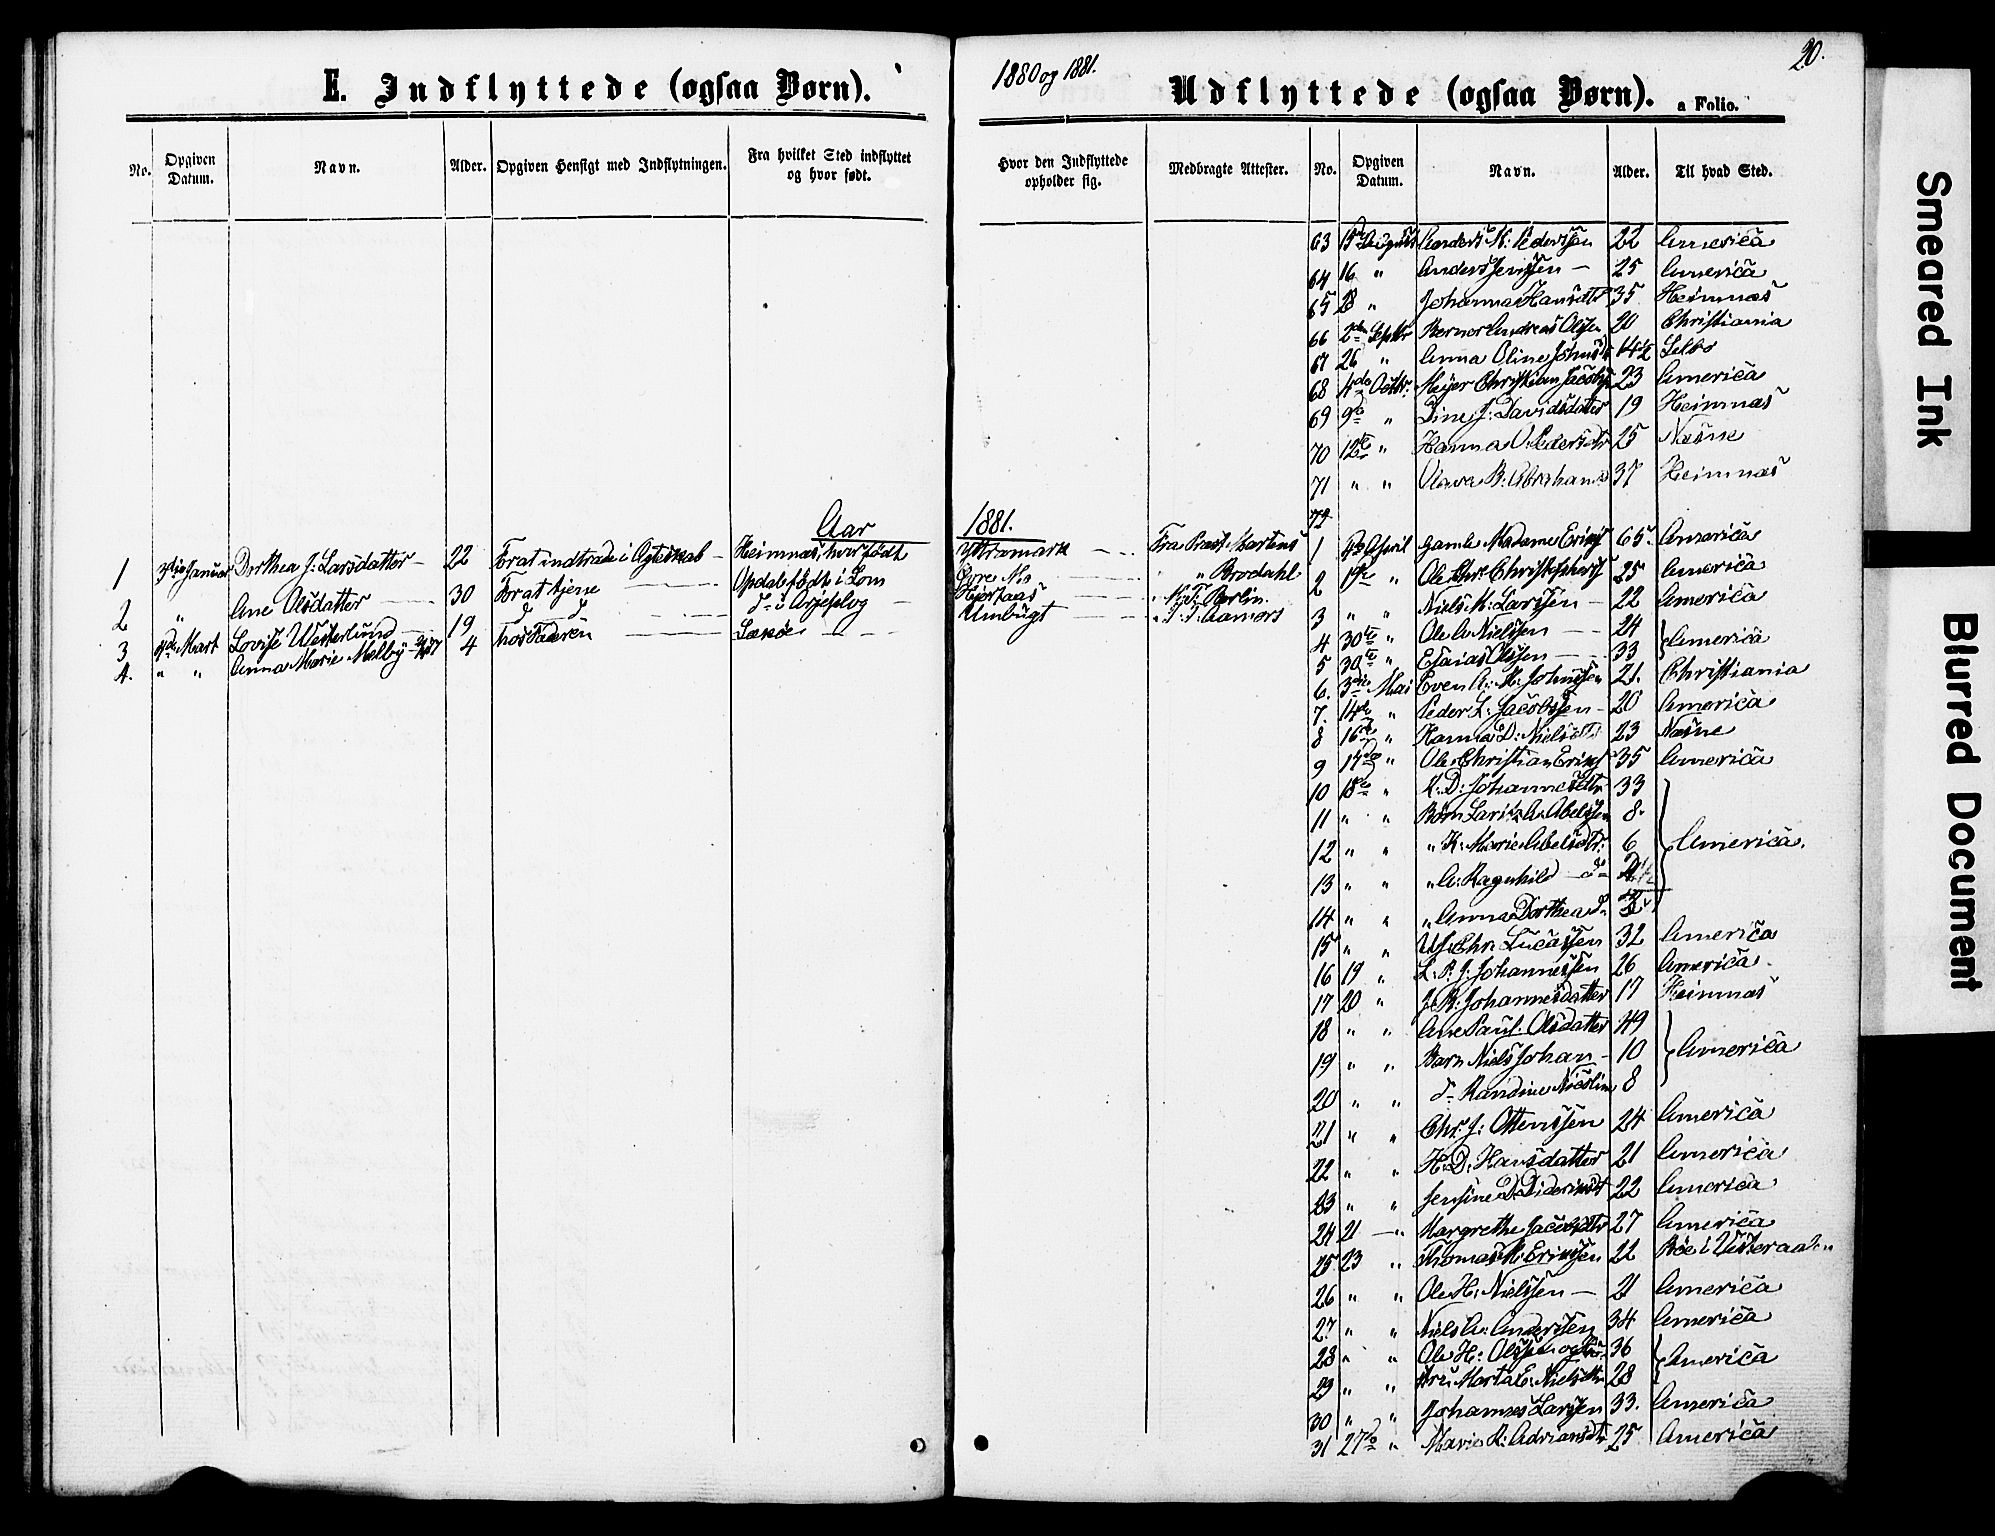 E. Indflyttede (ogsaa Børn).
No. Opgiven Datum. Navn. Alder. Opgiven Hensigt med Indflytningen. Fra hvilket Sted indflyttet og hvor født.
Aar
1 Januar Dorthea J: Larsdatter 22 For at indtræde i Ægteskab Heimnæs, hvor født
2 " Ane Olsdatter 30 For at tjene Opdal født i Lom
3 Mart Lovise Westerlund 19 d d d i Arjeplog
4. " " Anna Marie Melby 4 hos Faderen
1880 og 1881.
20.
Udflyttede (ogsaa Børn). a Folio.
Hvor den Indflyttede opholder sig. Medbragte Attester. No. Opgiven Datum. Navn. Alder. Til hvad Sted.
63 15 August Anders K: Pedersen 22 America
64 16 " Anders Jensen 25 America
65 28 " Johanna Hansdtr 35 Heimnæs
66 2den Septbr Bernor Andreas Olsen 20 Christiania
67 26 " Anna Oline 14½ Selbo
68 4de Octbr: Meyer Christian 23 America
69 9de " Dine J: Davidsdatter 19 Heimnæs
70 12te " Hanna O: Pedersdtr 25 Næsne
71 " " Olava B: Abraham 37 Heimnæs
72
1881.
Yttramark Fra Præst Martens
" Brodahl
Umbugt
1 April Gamle Madame 65. America
2 19de " Ole Chr: 25 America
3 " " Niels K: Larssen 22 America
4 30te " Ole A: Nielssen 24 America
5 30te " Esaias Olssen 33
6. 3die Mai Even A: 21. Christiania
7. 14de " Peder L: Jacobssen 20 America
8 16de " Hanna D: Nielsdtr 23 Næsne
9 17de " Ole Christian 35 America
10 18de " K: D: Johannesdtr 33
11 " " Børn Abelssen 8.
12 " " " K: Marie Abelsdtr: 6 America.
13 " " " A: Ragnhild d
14 " " " Anna Dorthea d
15 " " Chr: Lucassen 32 America
16 19 " L: P: J: Johannessen 26 America.
17 20 " J: B: Johannesdatter 17 Heimnæs
18 " " Ane Paul: Olsdatter 49
19 " " Barn Niels Johan 10 America
20 " " d Randine 8
21 " " Chr: J: Ottenssen 24 America
22 " " H: D: Hansdatter 21 America
23 " " Jensine D: 22 America
24 21 " Margrethe Jacobsdtr 27 America
25 23 " Thomas M: 22 Bøe i Vesteraalen
26 " " Ole H: Nielssen 21 America
27 " " Niels A: Anderssen 34 America
28 " " Ole H: Olssen og 36 America
29 " " Marta E: Nielsdtr 28
30 " " Johannes Larssen 33. America
31 27de " Marie K: Adriansdtr 25 America
Smeared Ink
Blurred Document